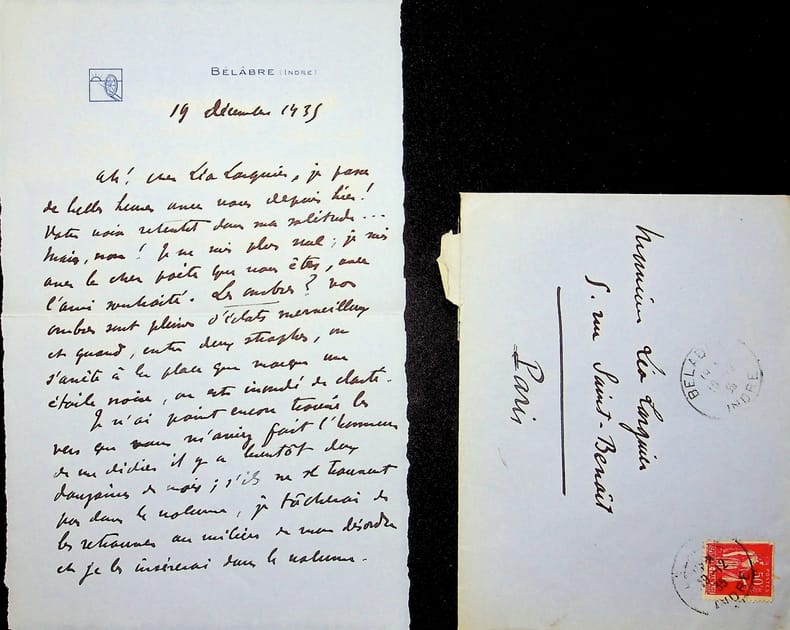 BÉLÂBRE (INDRE)
19 décembre 1935
Ah! cher Léo Larguier, je passe
de belles heures avec vous depuis hier!
Votre voix retentit dans ma solitude...
Mais, non! Je ne suis plus seul; je suis
avec le cher poète que vous êtes, avec
l'ami souhaité. Les ombres? vos
ombres sont pleines d'éclats merveilleux
et quand, entre deux strophes, on
s'arrête à la place que marque une
étoile noire, on est inondé de clarté.
Je n'ai point encore trouvé les
vers que vous m'aviez fait l'honneur
de me dédier il y a bientôt deux
douzaines de mois; s'ils ne se trouvent
pas dans le volume, je tâcherai de
les retrouver au milieu de mon désordre
et je les insérerai dans le volume.
Monsieur Léo Larguier
5. rue Saint-Benoît
Paris
BELAB
INDRE
50c
POSTES
INDRE